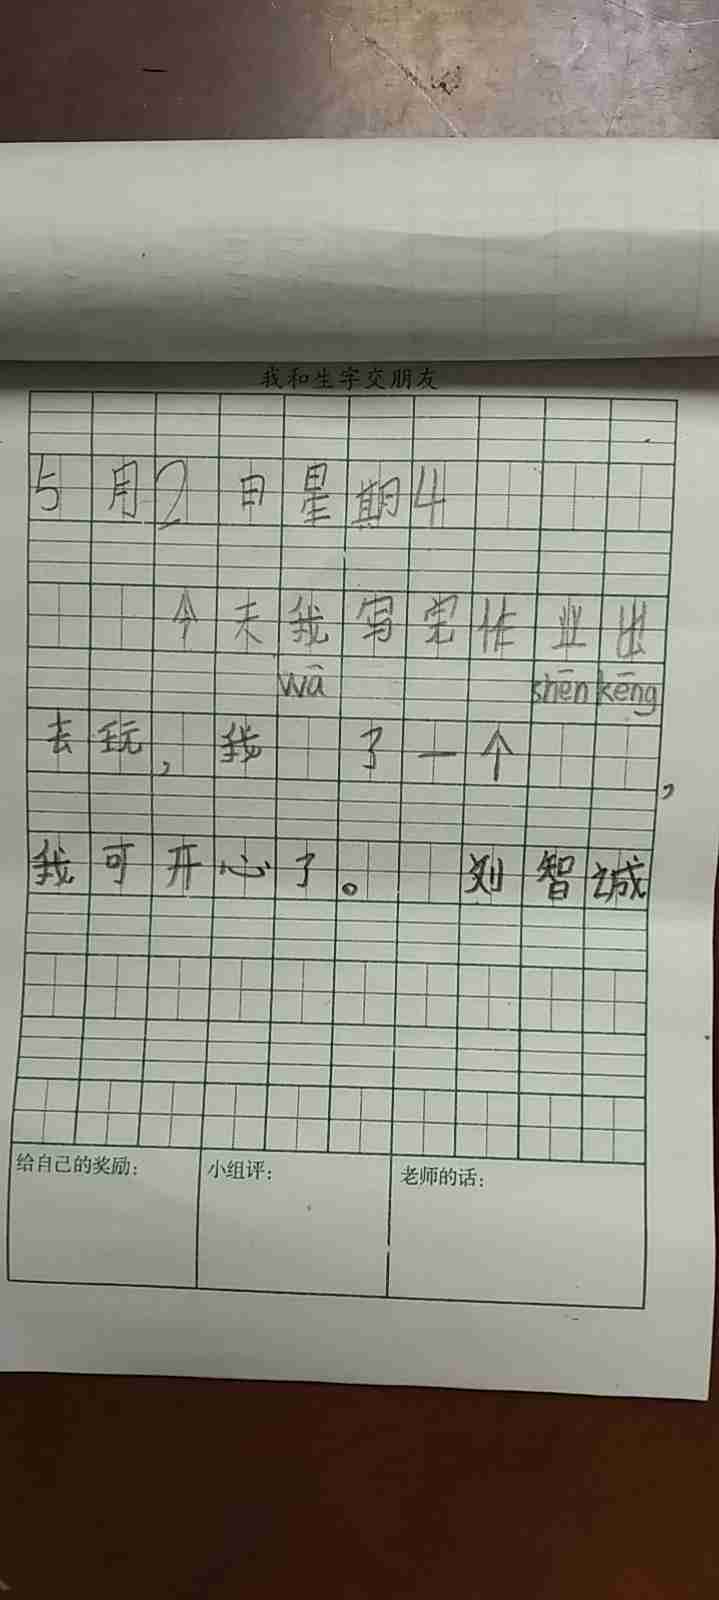 我和生字交朋友
5月2日星期4
今天我写完作业出
wā shēn kēng
去玩，我 了一个 ，
我可开心了。 刘智诚
给自己的奖励： 小组评： 老师的话：